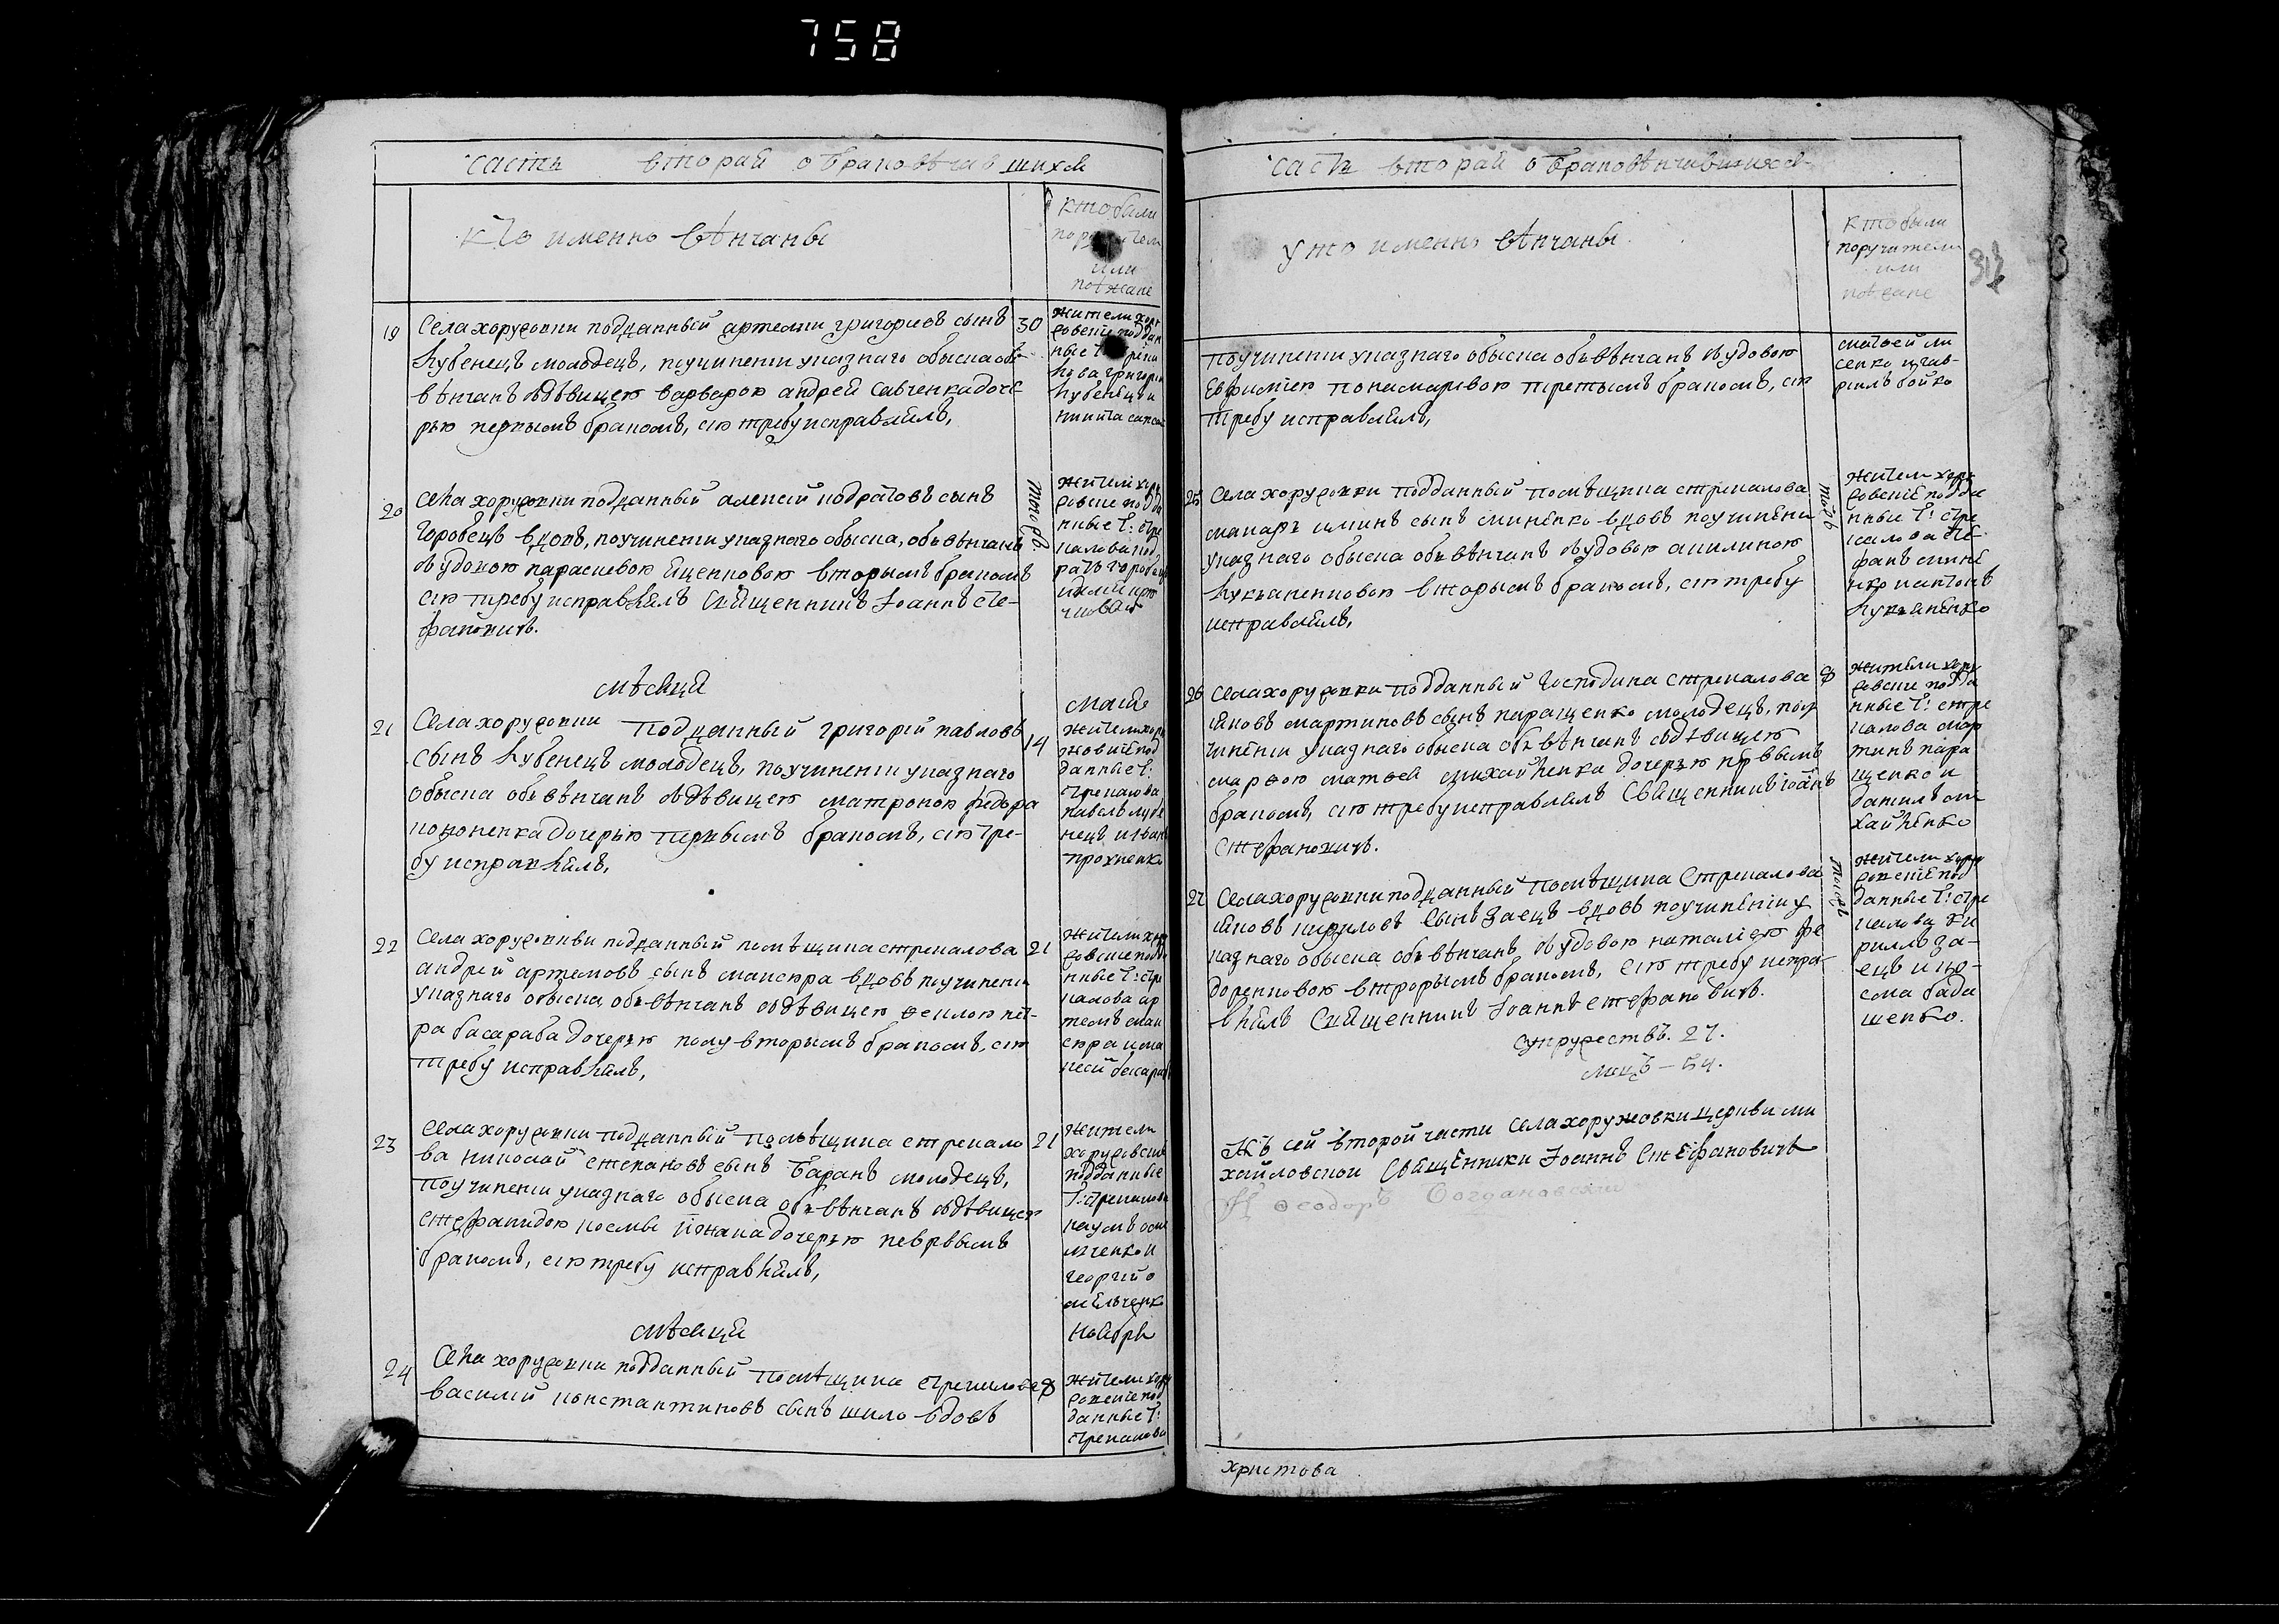 758
часть вторая о браковѣнчавшихся
кто именно вѣнчаны
кто были
или
поѣжане
19 Села хоружовки подданный артемии григориевъ сынъ 30
лубенецъ молодецъ, поучинении указнаго обыска объ
вѣнчанъ здѣвицею варварою андрей савченка доче
рью первымъ бракомъ, сію требу исправлялъ,
жители хору
жовские поддан
ные
лова григорій
лубенецъ и
никита
20 села хоружовки подданный алексій кодратовъ сынъ тогожъ
горобецъ вдовъ, поучинении указнаго обыска, объвѣнчанъ
вдовою параскевою ященковою вторымъ бракомъ
сію требу исправлялъ священникъ Іоаннъ сте-
фановичъ.
жители хору
жовские подда
нные г: стре
калова код
ратъ горобецъ
мѣсяца
маія
21 Села хоружовки подданный григорій павловъ 14
сынъ лубенецъ молодецъ, поучинении указнаго
обыска объвѣнчанъ здѣвицею матроною федора
кононенка дочерью первымъ бракомъ, сію тре-
бу исправлялъ,
жители хору
жовские под
данные г:
стрекалова
павелъ лубе
нецъ и иванъ
прохненко
22 Села хоружовки подданный помѣщика стрекалова 21
андрей артемовъ сынъ манскра вдовъ поучинении
указнаго обыска объвѣнчанъ здѣвицею феклою пет-
ра басараба дочерью полувторымъ бракомъ, сію
требу исправлялъ,
жители хору
жовские подда
нные г: стре
калова ар
темъ ман
скра и мо
исей басараб
23 села хоружовки подданный помѣщика стрекало 21
ва николай степановъ сынъ баранъ молодецъ,
поучинении указнаго обыска объвѣнчанъ здѣвицею
стефанидою космы йонана дочерью первымъ
бракомъ, сію требу исправлялъ,
жители
хоружовские
подданные
г: стрекалова
наумъ оме
лченко и
георгій о
мелченко
мѣсяца
ноября
24 села хоружовки подданный помѣщика стрекалова 8
василій константиновъ сынъ шило вдовъ
жители хору
жовские под
данные г:
стрекалова
часть вторая о браковѣнчавшихся
кто именно вѣнчаны
кто были
поручители
или
поѣжане
313
поучинении указнаго обыска объвѣнчанъ вдовою
Евфиміею понамаревою третьимъ бракомъ, сію
требу исправлялъ,
матвей ли
сенко и гав-
рилъ бойко
25 села хоружовки подданный помѣщика стрекалова тогожъ
макаръ минъ сынъ миненко вдовъ поучинении
указнаго обыска объвѣнчанъ вдовою акилиною
лукьяненковою вторымъ бракомъ, сію требу
исправлялъ,
жители хору
жовские подда
нные г: стре
калова сте
фанъ мине
нко и антонъ
лукьяненко
26 села хоружовки подданный господина стрекалова 8
яковъ мартиновъ сынъ паращенко молодецъ, поу
чинении указнаго обыска объвѣнчанъ здѣвицею
марѳою матвей михайленка дочерью первымъ
бракомъ, сію требу исправлялъ Священникъ іоаннъ
Стефановичъ.
жители хору
жовские подда
нные г: стре
калова мар
тинъ пара
щенко и
данилъ ми
хайленко
27 Села хоружовки подданный помѣщика Стрекалова тогожъ
яковъ кириловъ сынъ заецъ вдовъ поучинении у
казнаго обыска объвѣнчанъ вдовою наталіею фе
доренковою вторымъ бракомъ, сію требу испра-
влялъ Священникъ Іоаннъ стефановичъ.
жители хору
жовские под
данные г: стре
калова ки
риллъ за-
ецъ и ко-
сма бада
шенко.
супружествъ. 27.
лицъ – 54.
Къ сей второй части села хоружовки церкви ми
хайловской Священники Іоаннъ Стефановичъ
И Ѳеодоръ Богдановский
христова